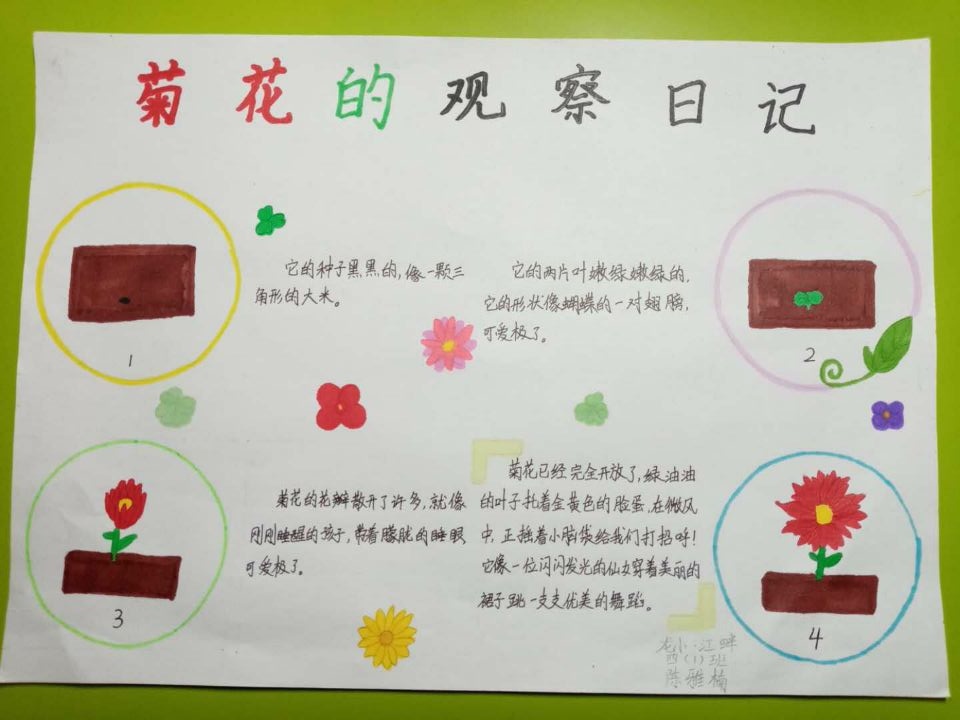 菊花的观察日记
它的种子黑黑的,像一颗三
角形的大米。
1
它的两片叶嫩绿嫩绿的,
它的形状像蝴蝶的一对翅膀,
可爱极了。
2
菊花的花瓣散开了许多,就像
刚刚睡醒的孩子,带着朦胧的睡眼
可爱极了。
3
菊花已经完全开放了,绿油油
的叶子托着金黄色的脸蛋,在微风
中,正摇着小脑袋给我们打招呼!
它像一位闪闪发光的仙女穿着美丽的
裙子跳一支支优美的舞蹈。
4
龙小·江畔
四(1)班
陈雅楠